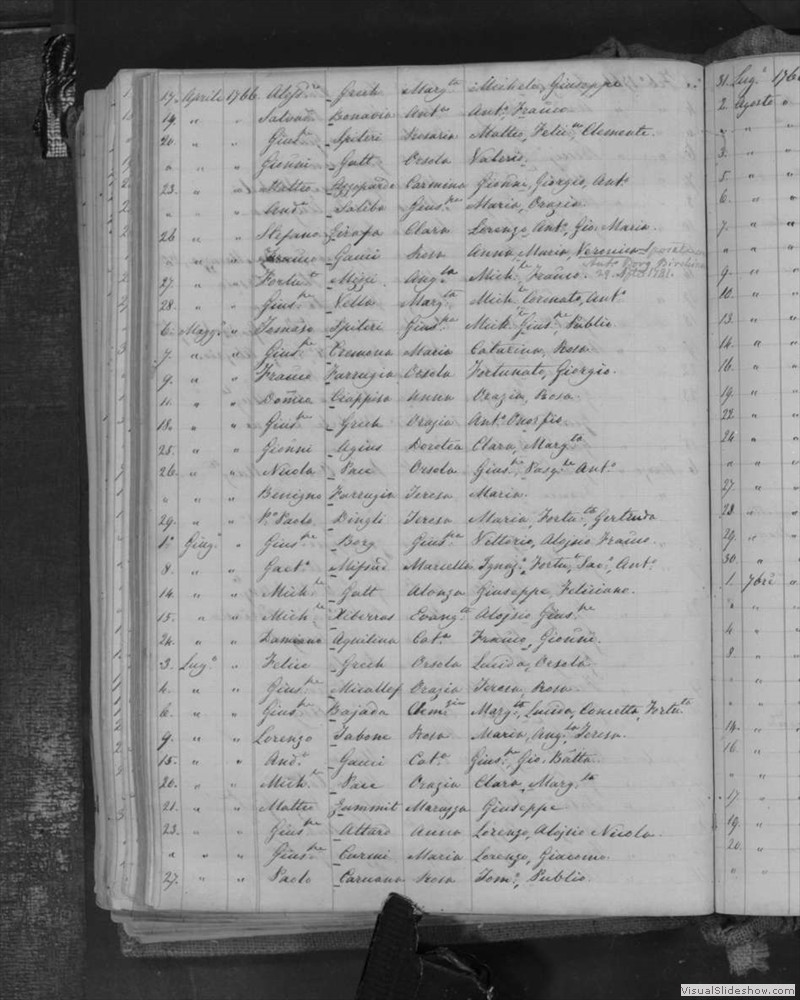 17. Aprile 1766 Alesd.ro Grech Marg.ta Michele, Giuseppe
19. " " Salvad.e Bonavia Ant.a Ant.o Franco
20. " " Gius.e Spiteri Rosaria Matteo, Felic.a Clemente
" " " Gionni Gatt Orsola Valerio
23. " " Matteo Azzopardo Carmina Gionni, Giorgio, Ant.o
" " " And.a Saliba Gius.pa Maria, Orazia
26 " " Stefano Zirafa Clara Lorenzo, Ant.o, Gio. Maria
" " " Franco Gauci Rosa Anna, Maria, Veronica
27. " " Fortu.to Mizzi Ang.ta Mich.le Franco.
28. " " Gius.pe Vella Marg.ta Mich.le Ant.o
6. Magg.o " Tomaso Spiteri Gius.pa Mich.le Gius.pe Publio
7. " " Gius.pe Cremona Maria Catarina, Rosa
9. " " Franco Farrugia Orsola Fortunato, Giorgio.
11. " " Domca Ciappisa Anna Orazia, Rosa
18. " " Gius.pe Grech Orazia Ant.o Onorfio
25. " " Gionni Agius Dorotea Clara, Marg.ta
26. " " Nicola Pace Orsola Gius.pe, Pasq.le Ant.o
" " " Benigno Farrugia Teresa Maria
29. " " P.o Paolo Dingli Teresa Maria, Fortu.ta Gertruda
1.o Giug.o " Gius.pe Borg Gius.pa Vittorio, Alojsio Franco.
8. " " Gaet.o Mifsud Mariella Ignaz.o, Fortu.to Sac.o, Ant.o
14. " " Mich.le Gatt Alonza Giuseppe, Feliciano.
15. " " Mich.le Xiberras Evang.ta Alojsio Gius.pe
24. " " Damiano Aquilina Cat.a Franco, Gionni.
3. Lug.o " Felice Grech Orsola Lucida, Orsola
4. " " Gius.pe Micallef Orazia Teresa, Rosa
6. " " Gius.pe Bajada Marg.ta, Lucida, Concetta, Fortu.ta
9. " " Lorenzo Tabone Rosa Maria, Ang.la, Teresa.
15. " " And.a Gauci Cat.a Gius.e Gio. Batta.
20. " " Mich.le Pace Orazia Clara, Marg.ta
21. " " Matteo Zammit Maruzza Giuseppe
23. " " Gius.pe Attard Anna Lorenzo, Alojsio Nicola
" " " Gius.pe Curmi Maria Lorenzo, Giacomo
27. " " Paolo Caruana Rosa Tom.o, Publio
31. Lug.o 1766
2. Agosto "
" "
3. "
5 "
6. "
7. "
9 "
10. "
13. "
14. "
16. "
19. "
22. "
24 "
" "
27. "
28. "
29. "
30. "
1. 7bre "
" "
4 "
8 "
" "
" "
14. "
16. "
" "
17 "
19. "
20 "
" "
VisualSlideshow.com